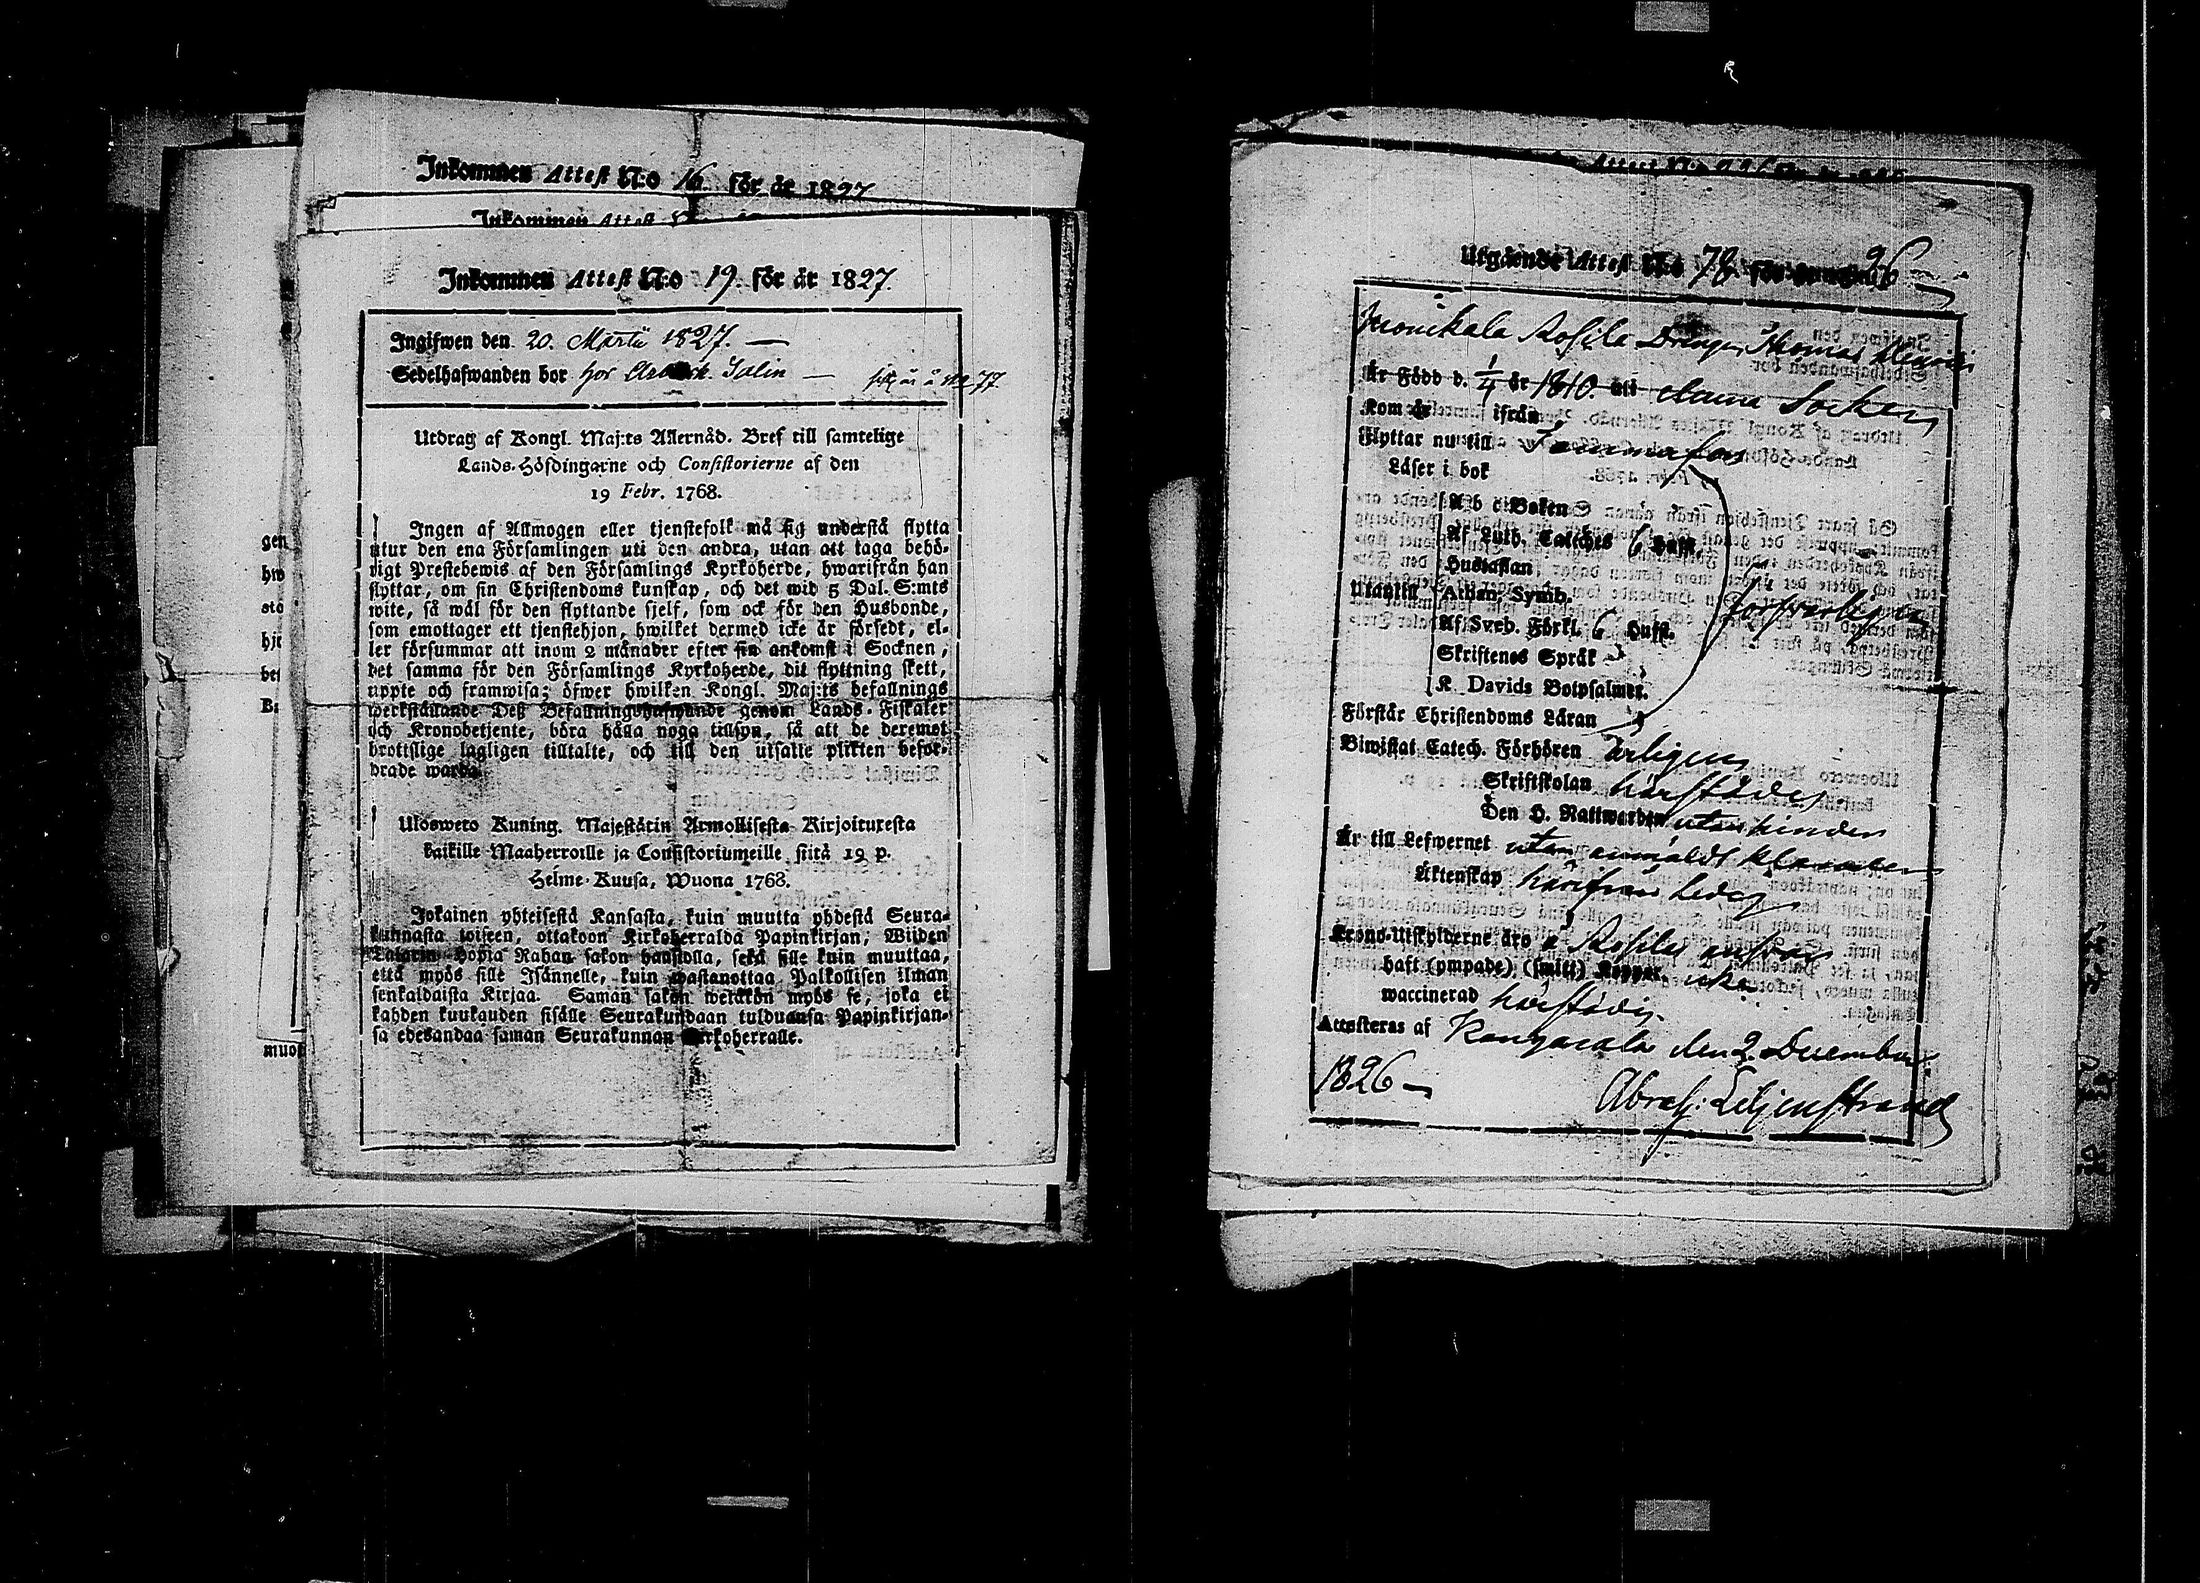 Inkommen Attest N:o 16. för år 1827
Inkommen Attest
Inkommen Attest N:o 19. för år 1827.
Ingifwen den 20. Martii 1827. —
Sedelhafwanden bor hos Salin —
Utdrag af Kongl. Maj:ts Allernåd. Bref till samtelige
Lands-Höfdingarne och Consistorierne af den
19 Febr. 1768.
Ingen af Allmogen eller tjenstefolk må sig understå flytta
utur den ena Församlingen uti den andra, utan att taga behö-
rigt Prestebewis af den Församlings Kyrkoherde, hwarifrån han
flyttar, om sin Christendoms kunskap, och det wid 5 Dal. S:mts
wite, så wäl för den flyttande sjelf, som ock för den Husbonde,
som emottager ett tjenstehjon, hwilket dermed icke är försedt, el-
ler försummar att inom 2 månader efter sin ankomst i Socknen,
det samma för den Församlings Kyrkoherde, dit flyttning skett,
uppte och framwisa; öfwer hwilken Kongl. Maj:ts befallnings
werkställande Deß Befallningshafwande genom Lands-Fiskaler
och Kronobetjente, böra hålla noga tillsyn, så att de deremot
brottslige lagligen tilltalte, och till den utsatte plikten befor-
drade warda.
Ulosweto Kuning. Majestätin Armollisesta Kirjoituxesta
kaikille Maaherroille ja Consistoriumeille siitä 19 p.
Helme-Kuusa, Wuona 1768.
Jokainen yhteisestä Kansasta, kuin muutta yhdestä Seura-
kunnasta toiseen, ottakoon Kirkoherralda Papinkirjan, Wiiden
Talarin Hopia Rahan sakon haastolla, sekä sille kuin muuttaa,
että myös sille Isännelle, kuin wastanottaa Palkollisen ilman
senkaldaista Kirjaa. Saman sakon weickon myös se, joka ei
kahden kuukauden sisälle Seurakundaan tulduansa Papinkirjan-
sa edesandaa saman Seurakunnan Kirkoherralle.
Utgående Attest N:o 78 för år 1826
Rosila Dräng Thomas
Är Född d. 1/4 år 1810. uti denna Socken
Kom år ifrån
Flyttar nu till Tammerfors
Läser i bok
A b c Boken
Af Luth. Catches 6 Hufst.
Hustaflan
Utantill Athan. Symb.
Af Sveb. Förkl. 6 Hufst. försvarligen
Skriftenes Språk
K. Davids Botpsalmer.
Förstår Christendoms Läran
Biwistat Catech. Förhören årligen
Skriftskolan härstädes
Den H. Nattwarden utan hinder
Är till Lefwernet utan anmäldt klander
Äktenskap härifrån ledig
Krono-Utskylderne äro å Rosila
haft (ympade) (smitt) Koppor. icke
waccinerad härstädes.
Attesteras af Kangasala den 2. December
1826 —
Abrah: Liljenstrand